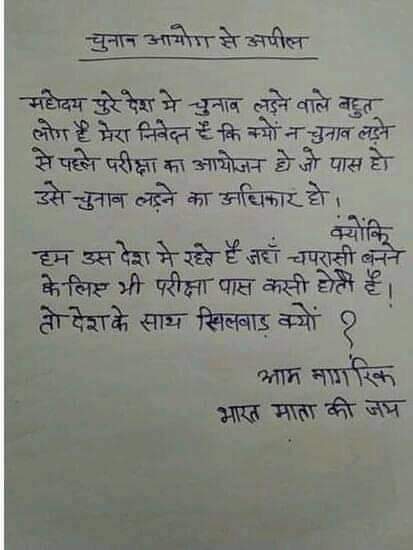 चुनाव आयोग से अपील
महोदय पुरे देश मे चुनाव लड़ने वाले बहुत
लोग है मेरा निवेदन है कि क्यों न चुनाव लड़ने
से पहले परीक्षा का आयोजन हो जो पास हो
उसे चुनाव लड़ने का अधिकार हो।
क्योंकि
हम उस देश मे रहते है जहाँ चपरासी बनने
के लिए भी परीक्षा पास कसी होती है।
तो देश के साथ खिलवाड़ क्यों ?
आम नागरिक
भारत माता की जय